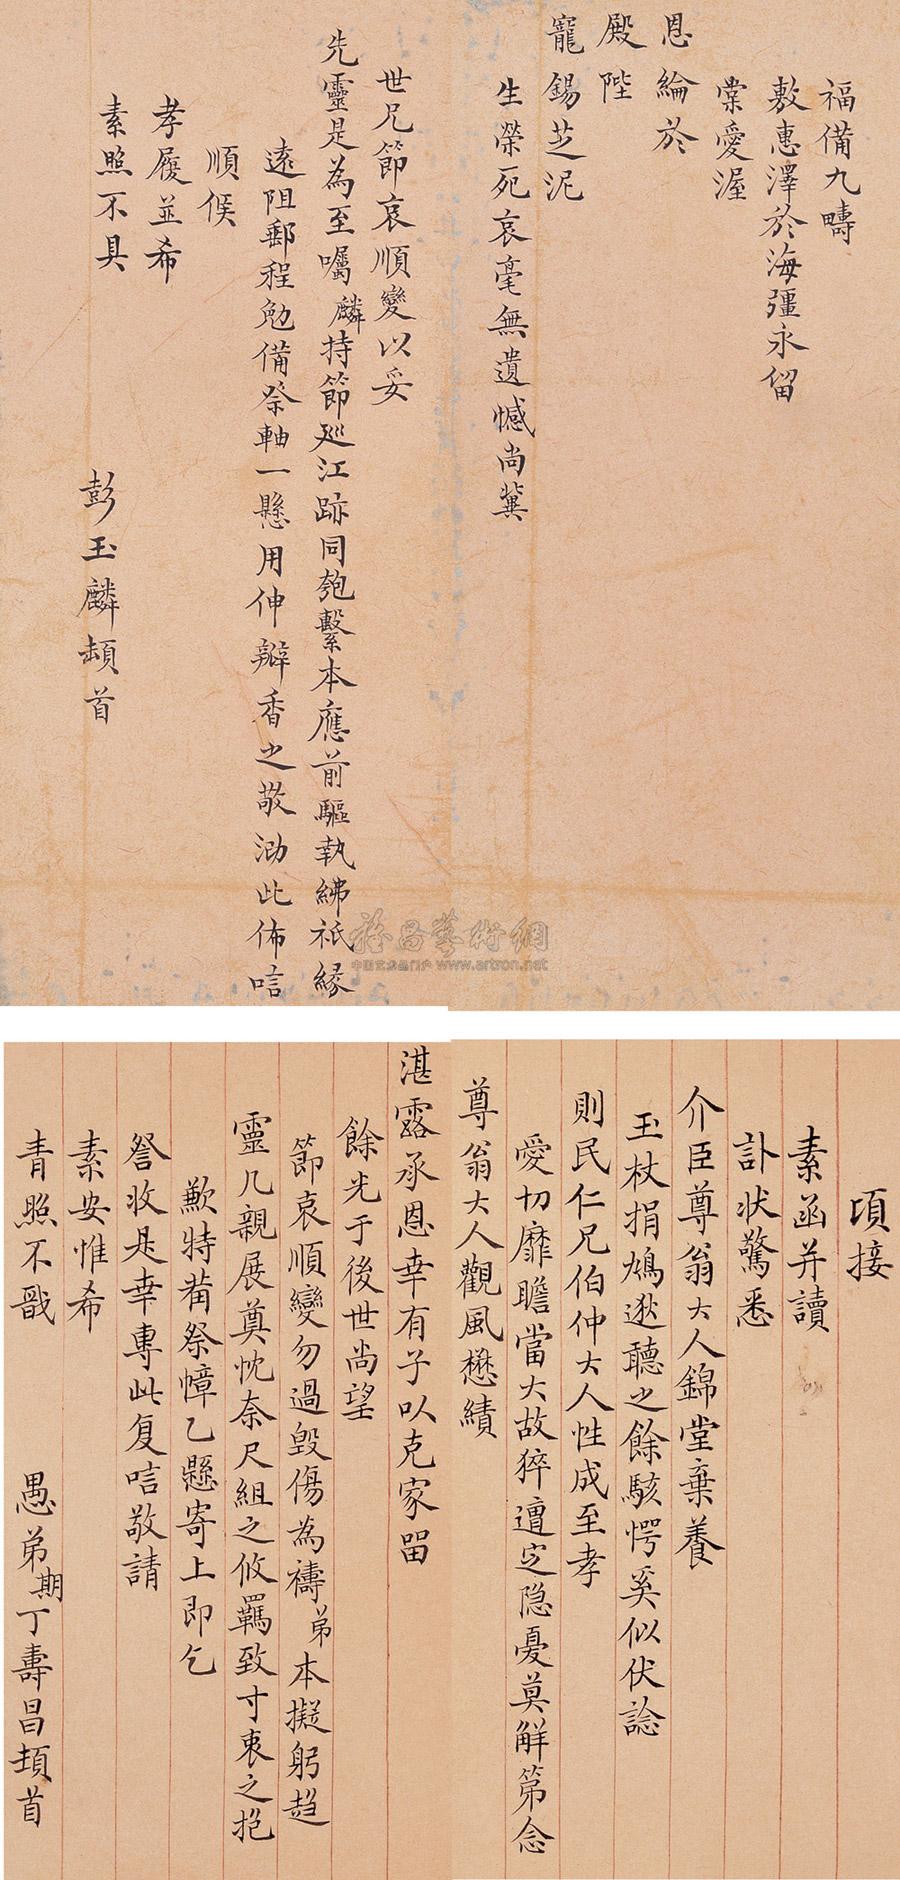 福備九疇
敷惠澤於海疆永留
棠愛渥
恩綸於
殿陛
寵錫芝泥
生榮死哀毫無遺憾尚冀
世兄節哀順變以妥
先靈是為至囑麟持節巡江跡同匏繫本應前驅執紼祇緣
遠阻郵程勉備祭軸一懸用伸瓣香之敬泐此佈唁
順候
孝履並希
素照不具
彭玉麟頓首
頃接
素函并讀
訃狀驚悉
介臣尊翁大人錦堂棄養
玉杖捐鳩逖聽之餘駭愕奚似伏諗
則民仁兄伯仲大人性成至孝
愛切靡瞻當大故猝遭定隐憂莫解第念
尊翁大人觀風懋績
湛露承恩幸有子以克家留
餘光于後世尚望
節哀順變勿過毀傷為禱弟本擬躬趋
靈几親展奠忱奈尺組之攸羈致寸衷之抱
歉特葡祭幛乙懸寄上即乞
詧收是幸專此复唁敬請
素安惟希
青照不戬
愚弟期丁壽昌頓首
中国艺术品门户 www.artron.net